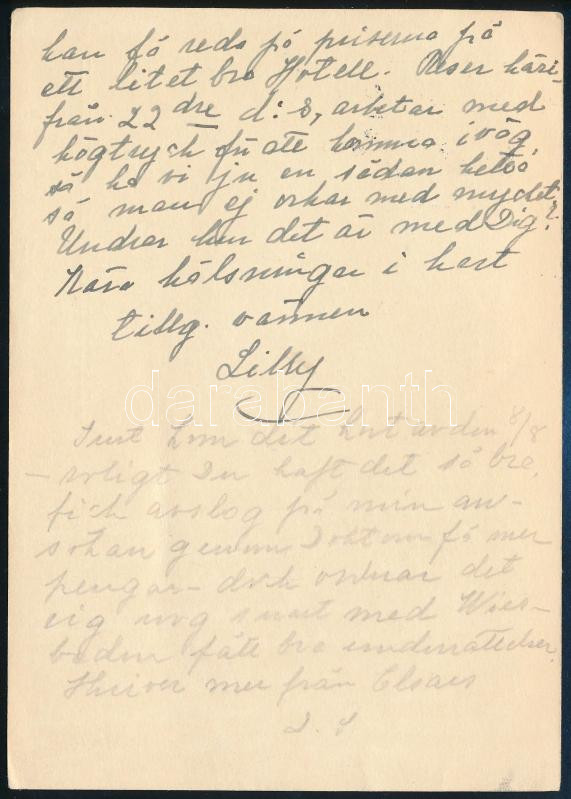 kan få reda på priserna på
ett litet bra Hotell. Reser häri-
från 22 dre d: s, arbetar med
högtryck för att komma iväg,
så ha vi ju en sådan hetta
så man ej orkar med mycket.
Undrar hur det är med Dig?
Kära hälsningar i hast
tillg. vännen
Lilly
darabanth
Just kom det kort av den 8/8
– roligt Du haft det så bra,
fick avslag på min an-
sökan genom Doktorn få mer
pengar – dock ordnar det
sig nog snart med Wies-
baden fått bra underrättelser.
Skriver mer från Elsass